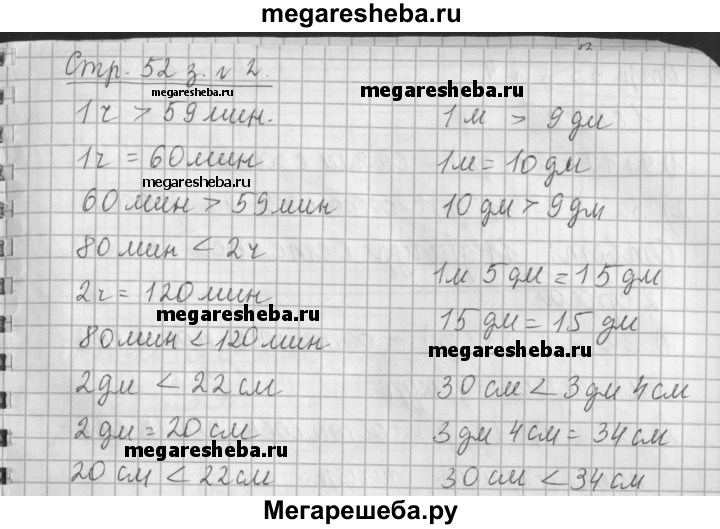 megaresheba.ru
Стр. 52 з. № 2.
megaresheba.ru
megaresheba.ru
1 ч > 59 мин.
1ч = 60 мин
megaresheba.ru
60 мин > 59 мин
80 мин < 2ч
2ч = 120 мин
megaresheba.ru
80 мин < 120 мин
2 дм < 22 см
2 дм = 20 см
20 см < 22 см
1 м > 9 дм
1м = 10 дм
10 дм > 9 дм
1м 5 дм = 15 дм
15 дм = 15 дм
megaresheba.ru
30 см < 3 дм 4 см
3 дм 4 см = 34 см
30 см < 34 см
Мегарешеба.ру